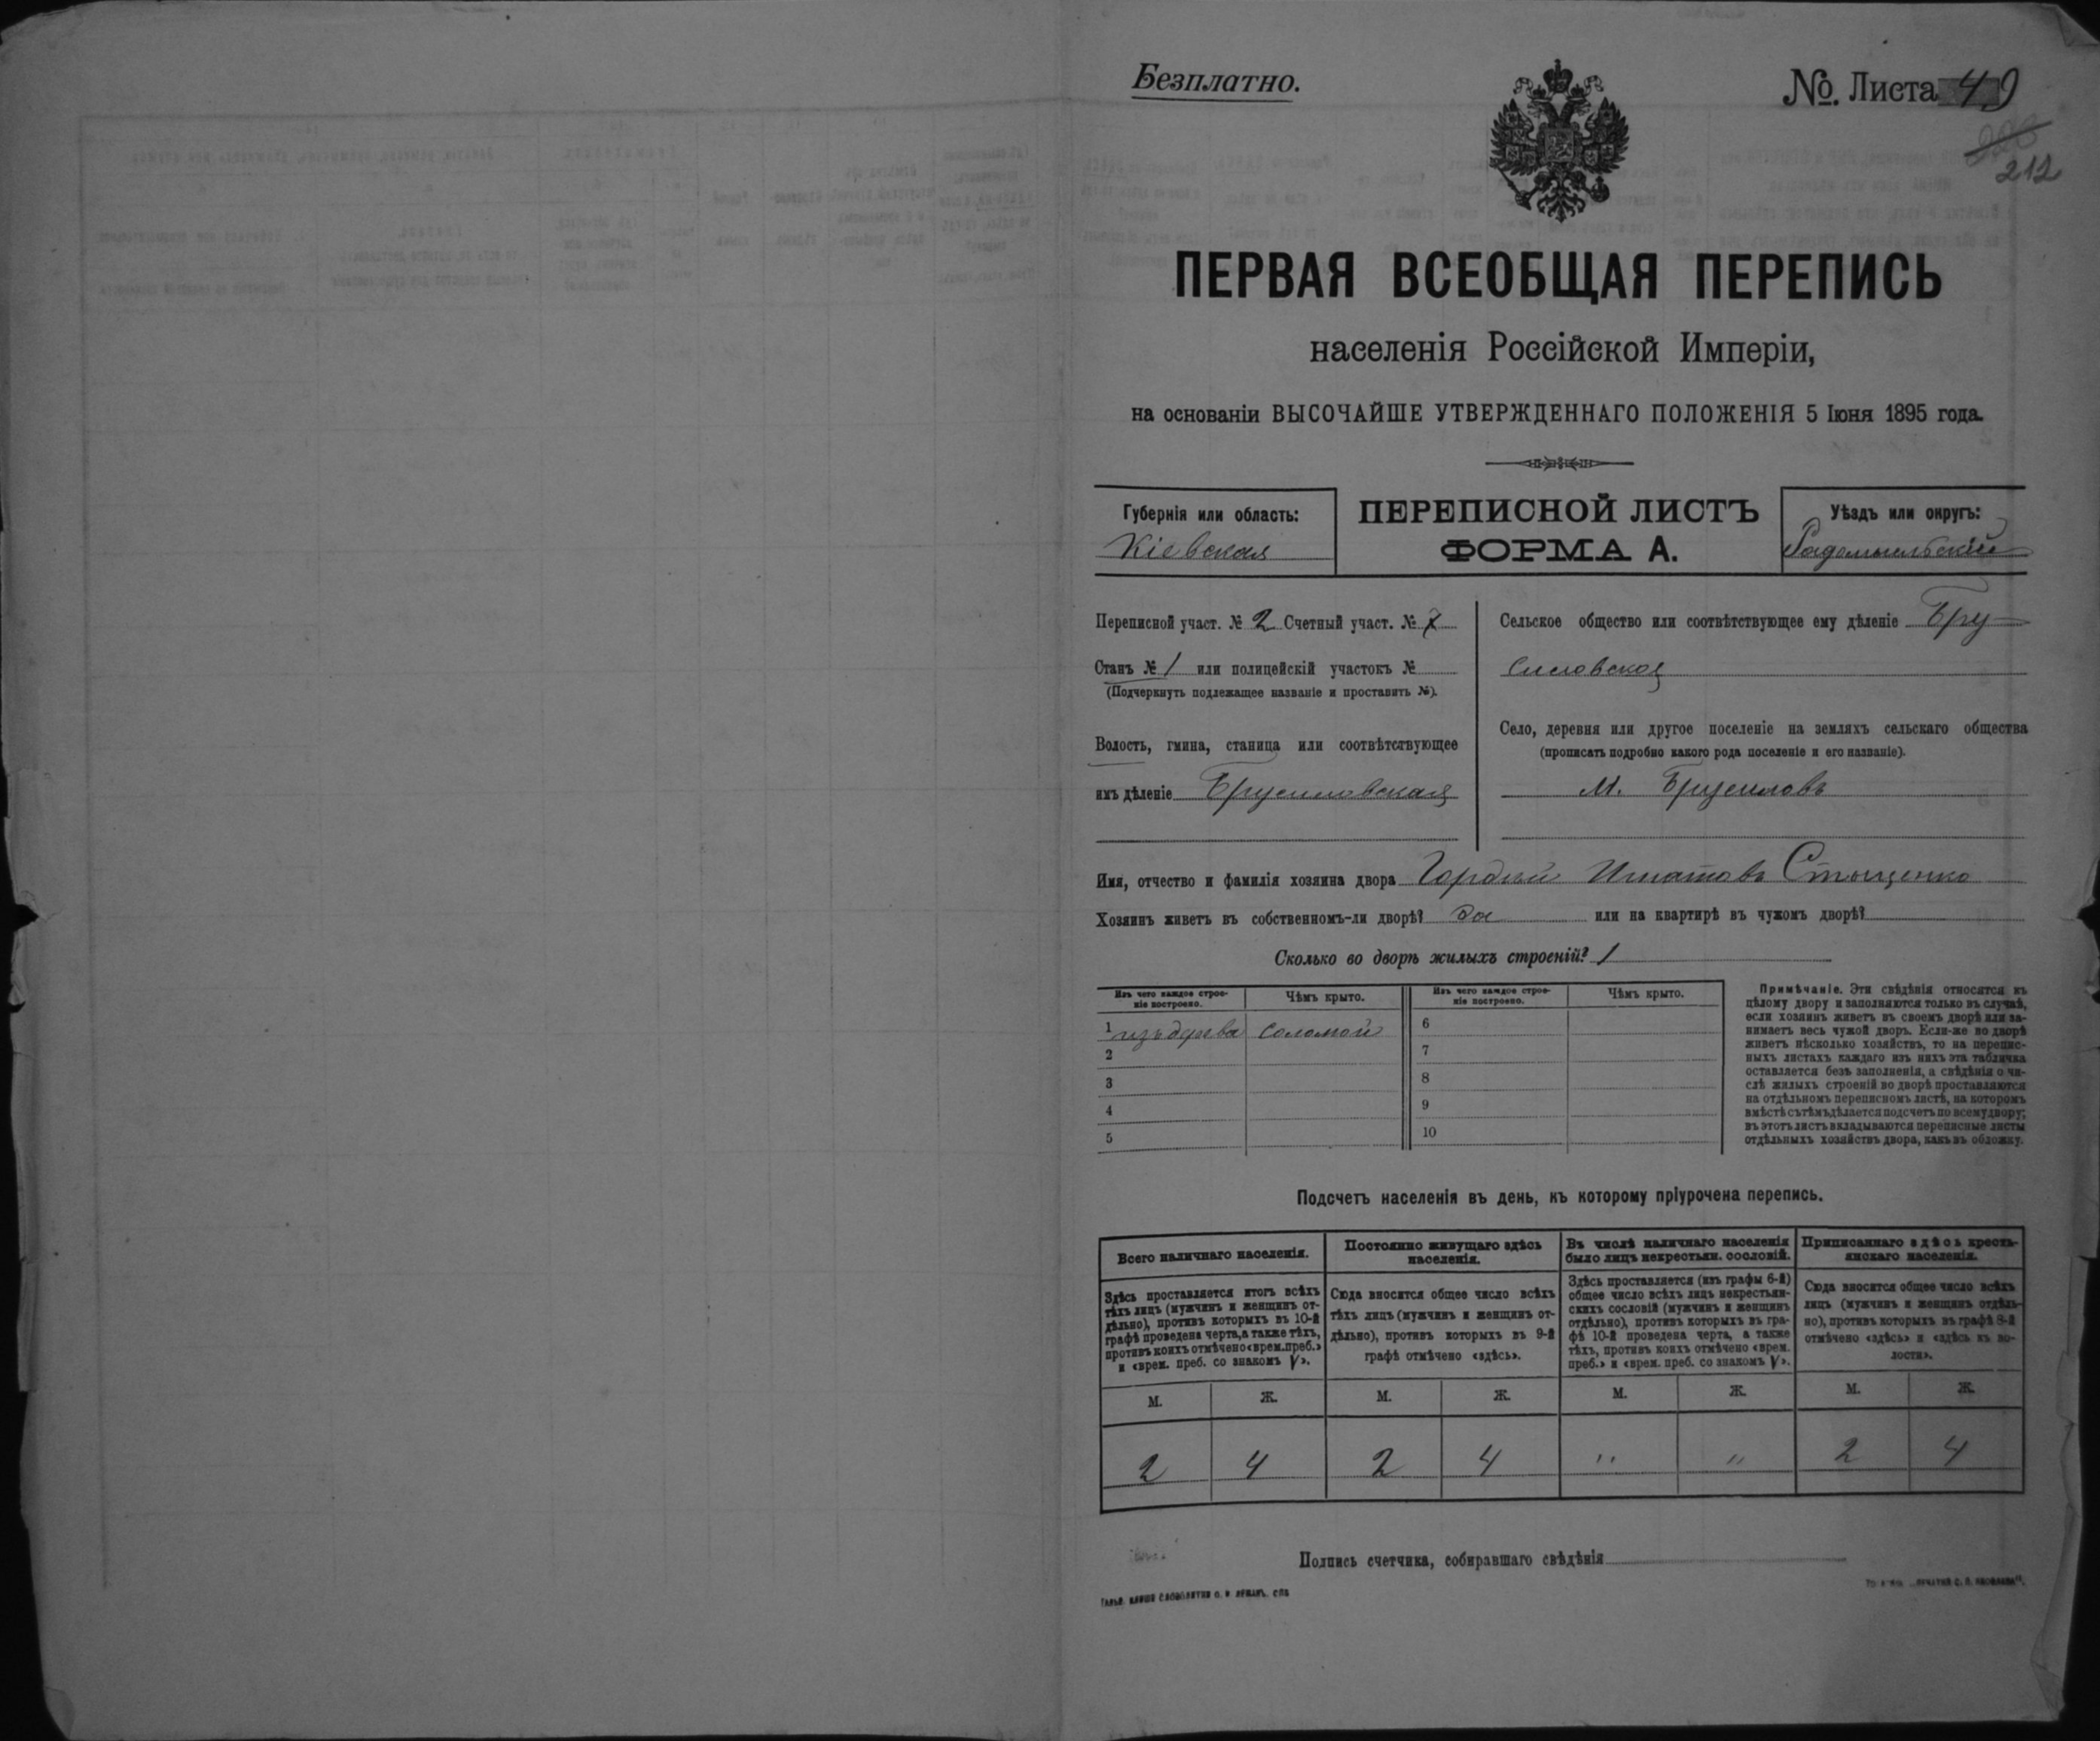 Безплатно.
№ Листа 49
212
ПЕРВАЯ ВСЕОБЩАЯ ПЕРЕПИСЬ
населенія Россійской Имперіи,
на основаніи ВЫСОЧАЙШЕ УТВЕРЖДЕННАГО ПОЛОЖЕНІЯ 5 Іюня 1895 года.
Губернія или область:
Кіевская
ПЕРЕПИСНОЙ ЛИСТЪ
ФОРМА А.
Уѣздъ или округъ:
Радомысльскій
Переписной участ. № 2 Счетный участ. №
Станъ № 1 или полицейскій участокъ №
(Подчеркнуть подлежащее названіе и проставить №).
Волость, гмина, станица или соотвѣтствующее
имъ дѣленіе Брусиловская
Сельское общество или соотвѣтствующее ему дѣленіе Бру-
силовская
Село, деревня или другое поселеніе на земляхъ сельскаго общества
(прописать подробно какого рода поселеніе и его названіе).
М. Брусиловъ
Имя, отчество и фамилія хозяина двора Гордій Игнатовъ Стыценко
Хозяинъ живетъ въ собственномъ-ли дворѣ? да или на квартирѣ въ чужомъ дворѣ?
Сколько во дворѣ жилыхъ строеній? 1
Изъ чего каждое строе-
ніе построено.
Чѣмъ крыто.
Изъ чего каждое строе-
ніе построено.
Чѣмъ крыто.
1 изъ дерева соломой
2
3
4
5
6
7
8
9
10
Примѣчаніе. Эти свѣдѣнія относятся къ
цѣлому двору и заполняются только въ случаѣ,
если хозяинъ живетъ въ своемъ дворѣ или за-
нимаетъ весь чужой дворъ. Если-же во дворѣ
живетъ нѣсколько хозяйствъ, то на перепис-
ныхъ листахъ каждаго изъ нихъ эта табличка
оставляется безъ заполненія, а свѣдѣнія о чи-
слѣ жилыхъ строеній во дворѣ проставляются
на отдѣльномъ переписномъ листѣ, на которомъ
вмѣстѣ съ тѣмъ дѣлается подсчетъ по всему двору;
въ этотъ листъ вкладываются переписные листы
отдѣльныхъ хозяйствъ двора, какъ въ обложку.
Подсчетъ населенія въ день, къ которому пріурочена перепись.
Всего наличнаго населенія.
Здѣсь проставляется итогъ всѣхъ
тѣхъ лицъ (мужчинъ и женщинъ от-
дѣльно), противъ которыхъ въ 10-й
графѣ проведена черта, а также тѣхъ,
противъ коихъ отмѣчено «врем. преб.»
и «врем. преб. со знакомъ V».
Постоянно живущаго здѣсь
населенія.
Сюда вносится общее число всѣхъ
тѣхъ лицъ (мужчинъ и женщинъ от-
дѣльно), противъ которыхъ въ 9-й
графѣ отмѣчено «здѣсь».
Въ числѣ наличнаго населенія
было лицъ некрестьян. сословій.
Здѣсь проставляется (изъ графы 6-й)
общее число всѣхъ лицъ некрестьян-
скихъ сословій (мужчинъ и женщинъ
отдѣльно), противъ которыхъ въ гра-
фѣ 10-й проведена черта, а также
тѣхъ, противъ коихъ отмѣчено «врем.
преб.» и «врем. преб. со знакомъ V».
Приписаннаго здѣсь кресть-
янскаго населенія.
Сюда вносится общее число всѣхъ
лицъ (мужчинъ и женщинъ отдѣль-
но), противъ которыхъ въ графѣ 8-й
отмѣчено «здѣсь» и «здѣсь къ во-
лости».
М. Ж. М. Ж. М. Ж. М. Ж.
2 4 2 4 " " 2 4
Подпись счетчика, собиравшаго свѣдѣнія